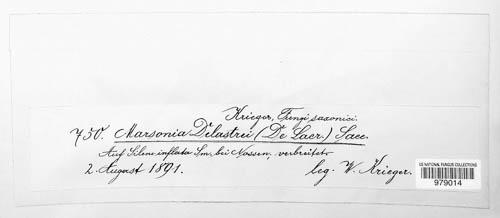 Krieger, Fungi saxonici.
750. Marsonia Delastrei (De Lacr.) Sacc.
Auf Silene inflata Sm. bei Nossen, verbreitet
2. August 1891. leg. W. Krieger.
US NATIONAL FUNGUS COLLECTIONS
979014